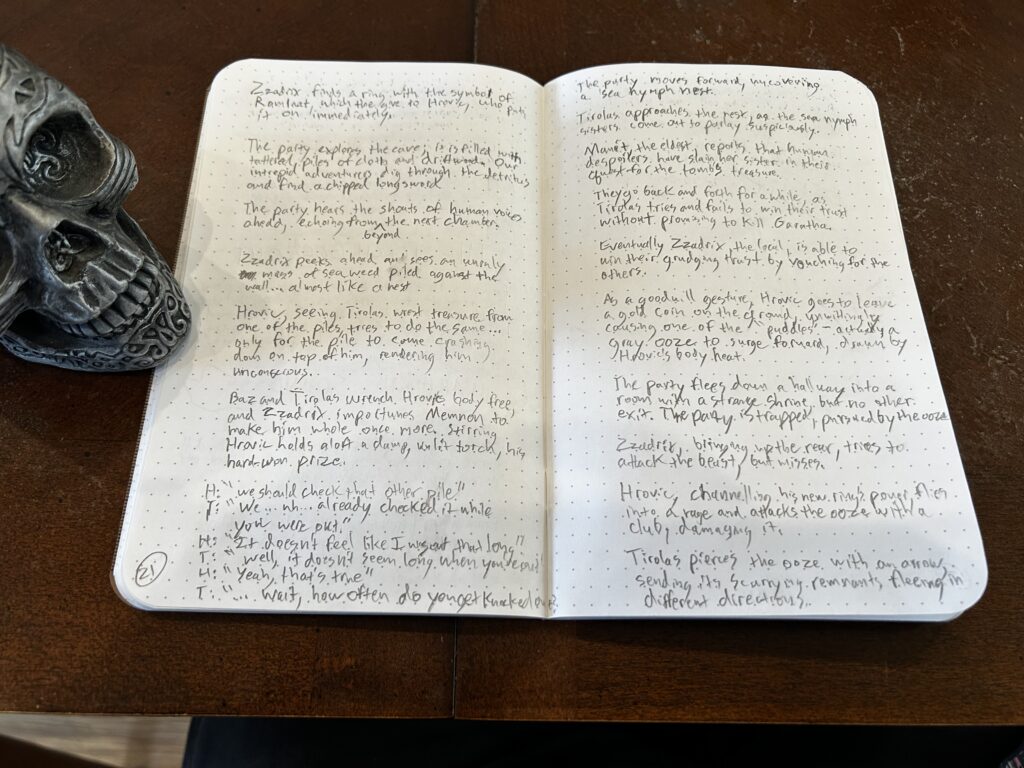 Zzadrix finds a ring with the symbol of
Ramlaat, which the give to Hrovic, who puts
it on immediately.
The party explores the cave; it is filled with
tattered piles of cloth and driftwood. Our
intrepid adventurers dig through the detritus
and find a chipped longsword
The party hears the shouts of human voices
ahead, echoing from the next chamber.
beyond
Zzadrix peeks ahead and sees an unruly
mass of sea weed piled against the
wall... almost like a nest
Hrovic, seeing Tirolas wrest treasure from
one of the piles, tries to do the same...
only for the pile to come crashing
down on top of him, rendering him
unconscious.
Baz and Tirolas wrench Hrovic's body free,
and Zzadrix importunes Memnon to
make him whole once more. Stirring
Hrovic holds aloft a damp, unlit torch, his
hard-won prize.
H: "we should check that other pile!"
T: "We... uh... already checked it while
you were out."
H: "It doesn't feel like I was out that long"
T: "well, it doesn't seem long when you're out"
H: "Yeah, that's true"
T: "... wait, how often do you get knocked out?
21
The party moves forward, uncovering
a sea nymph nest.
Tirolas approaches the nest, as the sea nymph
sisters come out to parlay suspiciously.
the eldest, reports that human
despoilers have slain her sister in their
quest for the tomb's treasure.
They go back and forth for a while, as
Tirolas tries and fails to win their trust
without promising to kill Garatha.
Eventually Zzadrix, the local, is able to
win their grudging trust by vouching for the
others.
As a goodwill gesture, Hrovic goes to leave
a gold coin on the ground, unwillingly
causing one of the "puddles" - actually a
gray ooze to surge forward, drawn by
Hrovic's body heat.
The party flees down a hallway into a
room with a strange shrine, but no other
exit. The party is trapped, pursued by the ooze
Zzadrix, bringing up the rear, tries to
attack the beast, but misses.
Hrovic, channelling his new ring's power, flies
into a rage and attacks the ooze with a
club, damaging it.
Tirolas pierces the ooze with an arrow,
sending its scurrying remnants fleeing in
different directions.